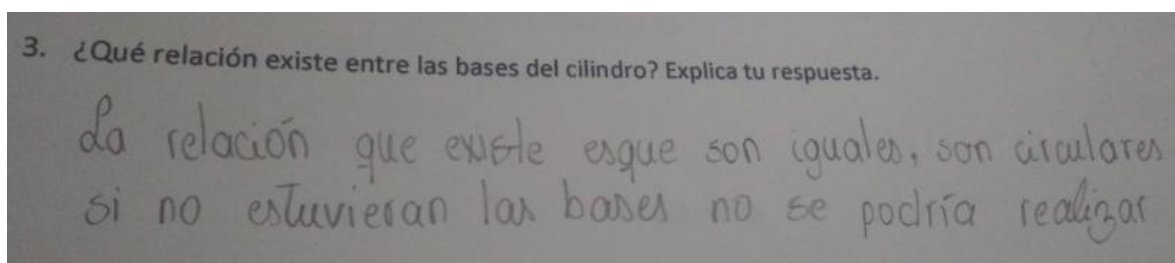 3. ¿Qué relación existe entre las bases del cilindro? Explica tu respuesta.
La relación que existe esque son iguales, son circulares
si no estuvieran las bases no se podría realizar